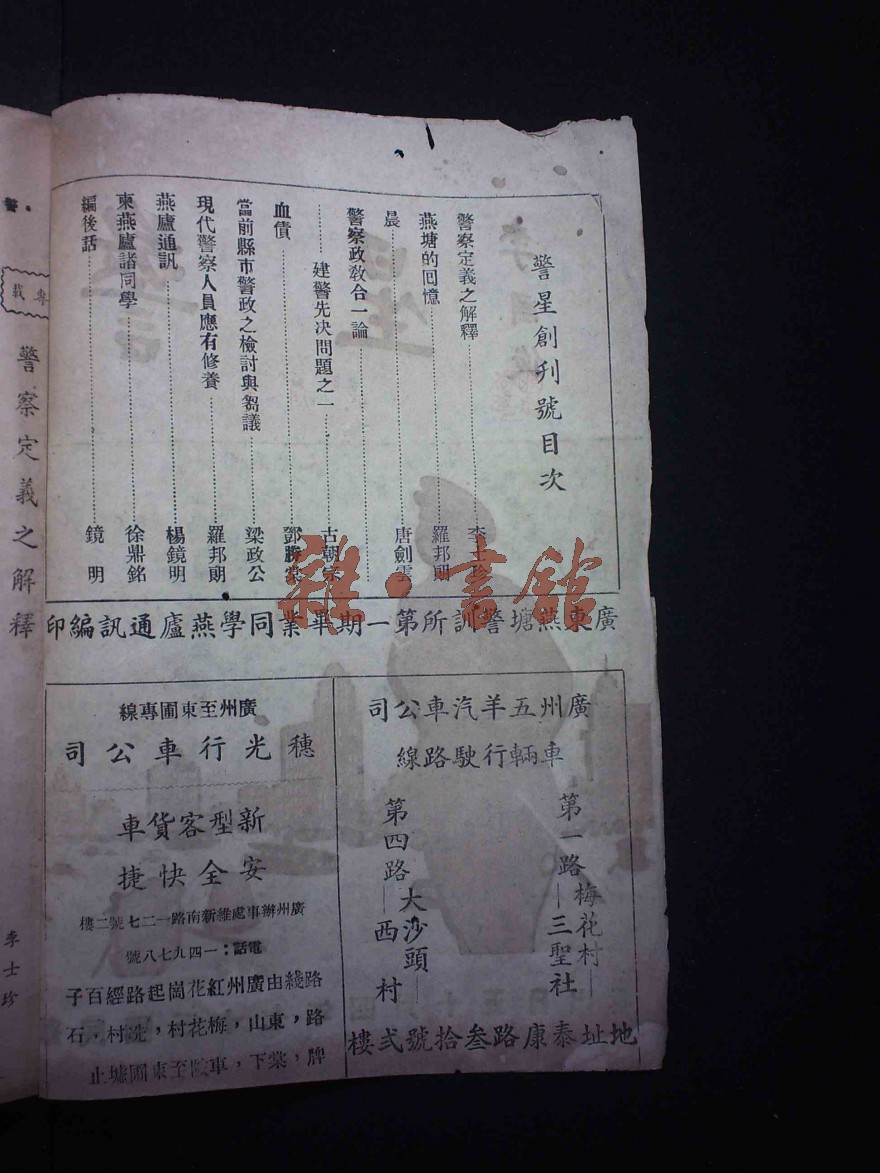 警星創刊號目次
警察定義之解釋……李士珍
燕塘的回憶……羅邦則
晨……唐劍雲
警察政教合一論……
……建警先決問題之一……古朝宗
血債……鄧勝棠
當前縣市警政之檢討與芻議……梁政公
現代警察人員應有修養……羅邦則
燕廬通訊……楊鏡明
柬燕廬諸同學……徐鼎銘
編後話……鏡 明
廣東燕塘警訓所第一期畢業同學燕廬通訊編印
廣州五羊汽車公司
車輛行駛路線
第一路—梅花村—三聖社
第四路—大沙頭—西村
地址泰康路叁拾號弍樓
廣州至東圃專線
穗光行車公司
新型客貨車
安全快捷
廣州辦事處維新南路一二七號二樓
電話：一四九七八號
路綫由廣州紅花崗起路經百子
路，東山，梅花村，冼村，石
牌，棠下，車陂至東圃墟止
雜·書館
專載
警察定義之解釋
李士珍
警